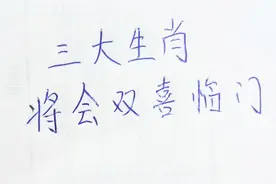 三大生肖
将会双喜临门